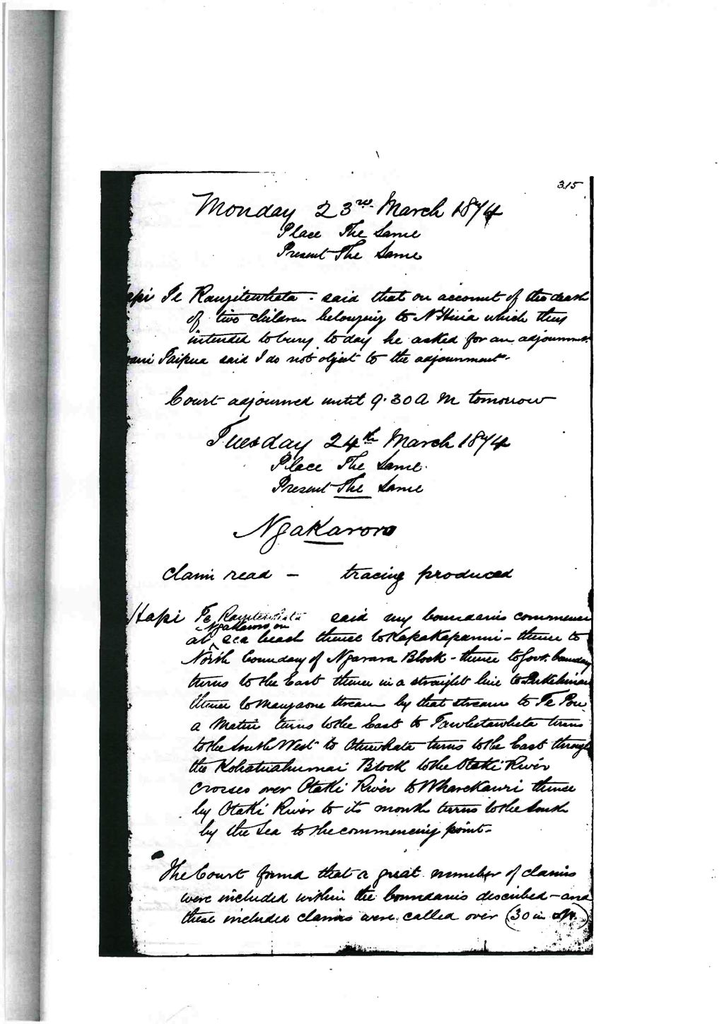 315
Monday 23rd March 1874
Place The Same
Present The Same
Hapi Te Rangitewhata - said that on account of the death
of two children belonging to N'Huia which they
intended to bury to day he asked for an adjournment
Taipua said I do not object to the adjournment.
Court adjourned until 9.30 A M tomorrow
Tuesday 24th March 1874
Place The Same.
Present The Same
Ngakaroro
claim read - tracing produced
Hapi Te Rangitewhata said my boundaries commence
Ngakaroro on
at sea beach thence to Kapakapanui - thence to
North boundary of Ngarara Block - thence to Govt. boundary
turns to the East thence in a straight line to
thence to Mangaone Stream by that stream to Te Pou
a Matui turns to the East to Tawhitawhita turns
to the South West to turns to the East through
the Kohatuahumai Block to the Otaki River
crosses over Otaki River to Wharekauri thence
by Otaki River to its mouth turns to the South
by the Sea to the commencing point.
The Court found that a great number of claims
were included within the boundaries described - and
these included claims were called over 30 in